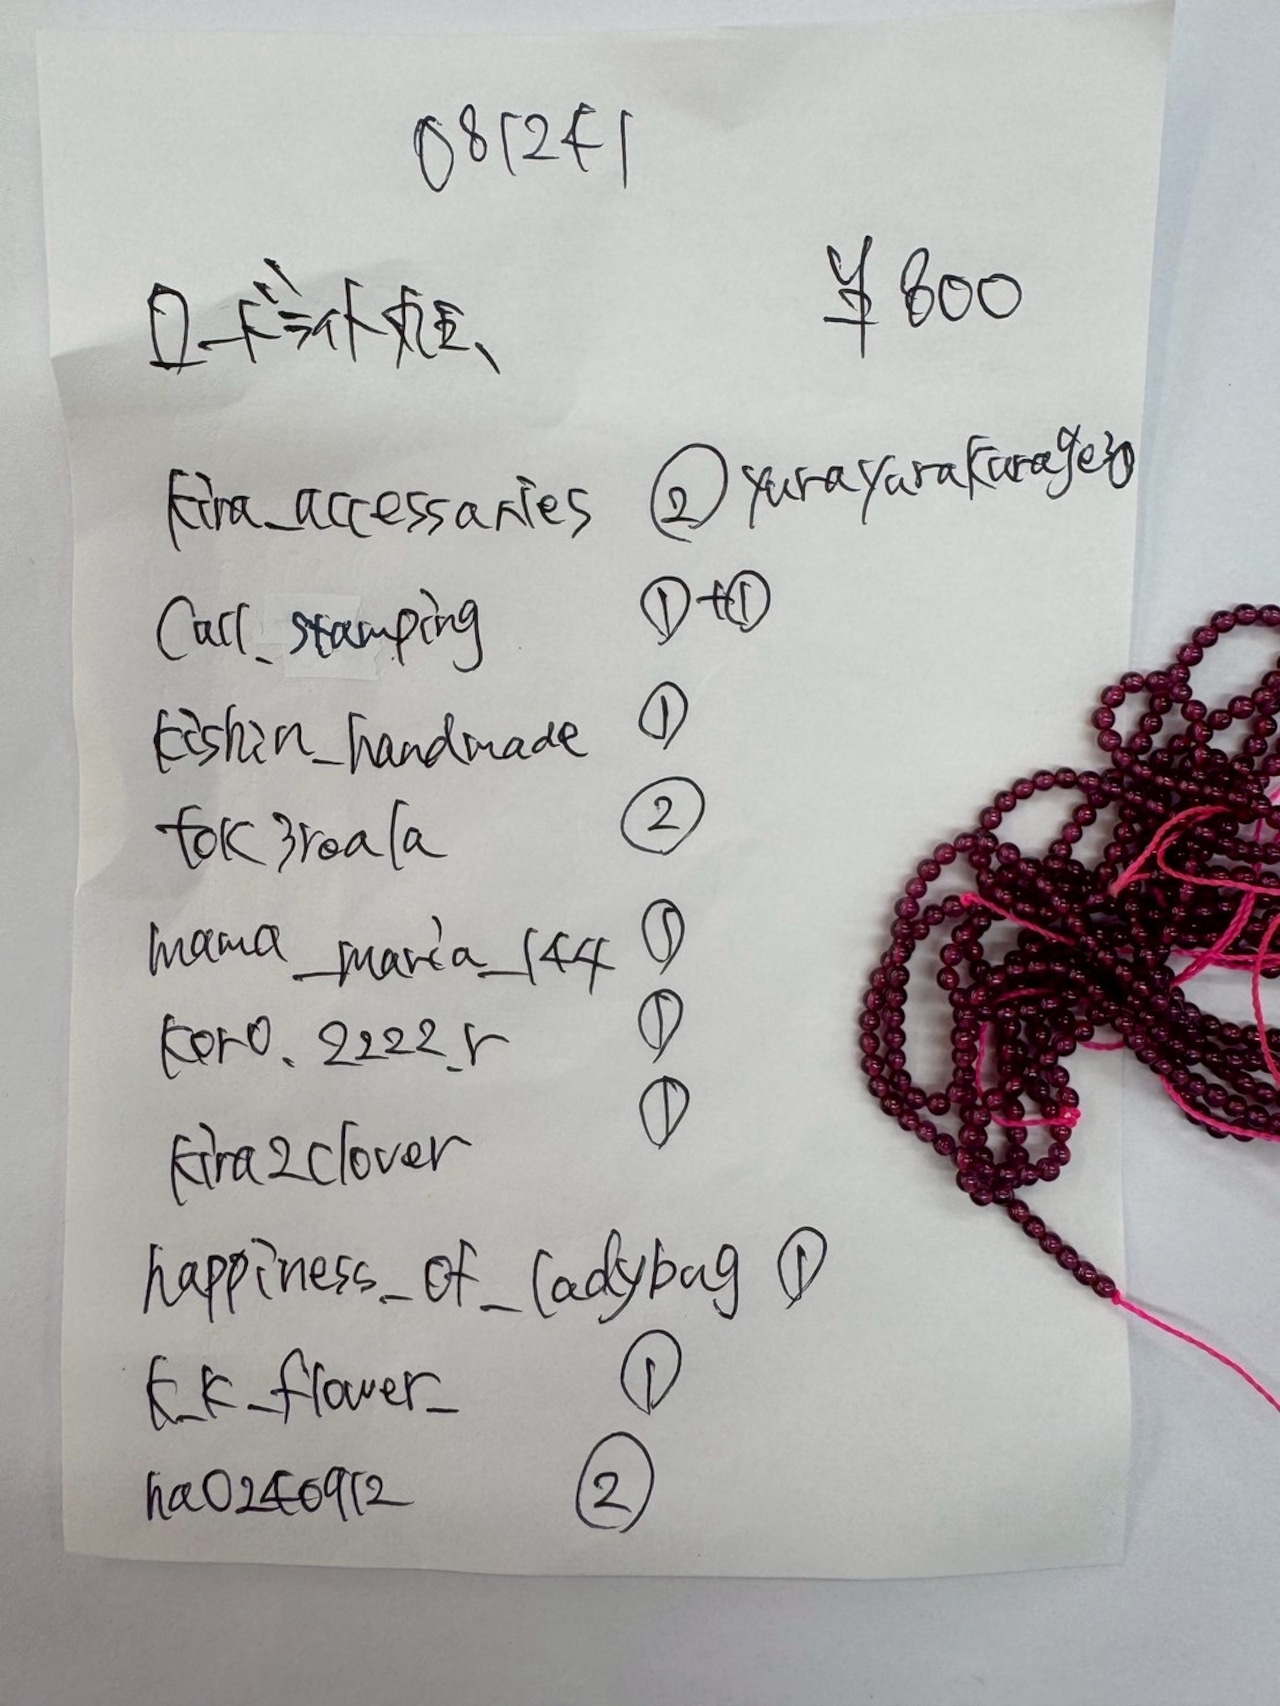 081241
ロードライト丸玉、 ¥800
kira_accessaries ② yurayurakurage30
Call_stamping ①+①
kishin_handmade ①
tok3roala ②
mama_maria_144 ①
koro.2222_r ①
kira2clover ①
happiness_of_ladybug ①
k_k_flower_ ①
ha0240912 ②